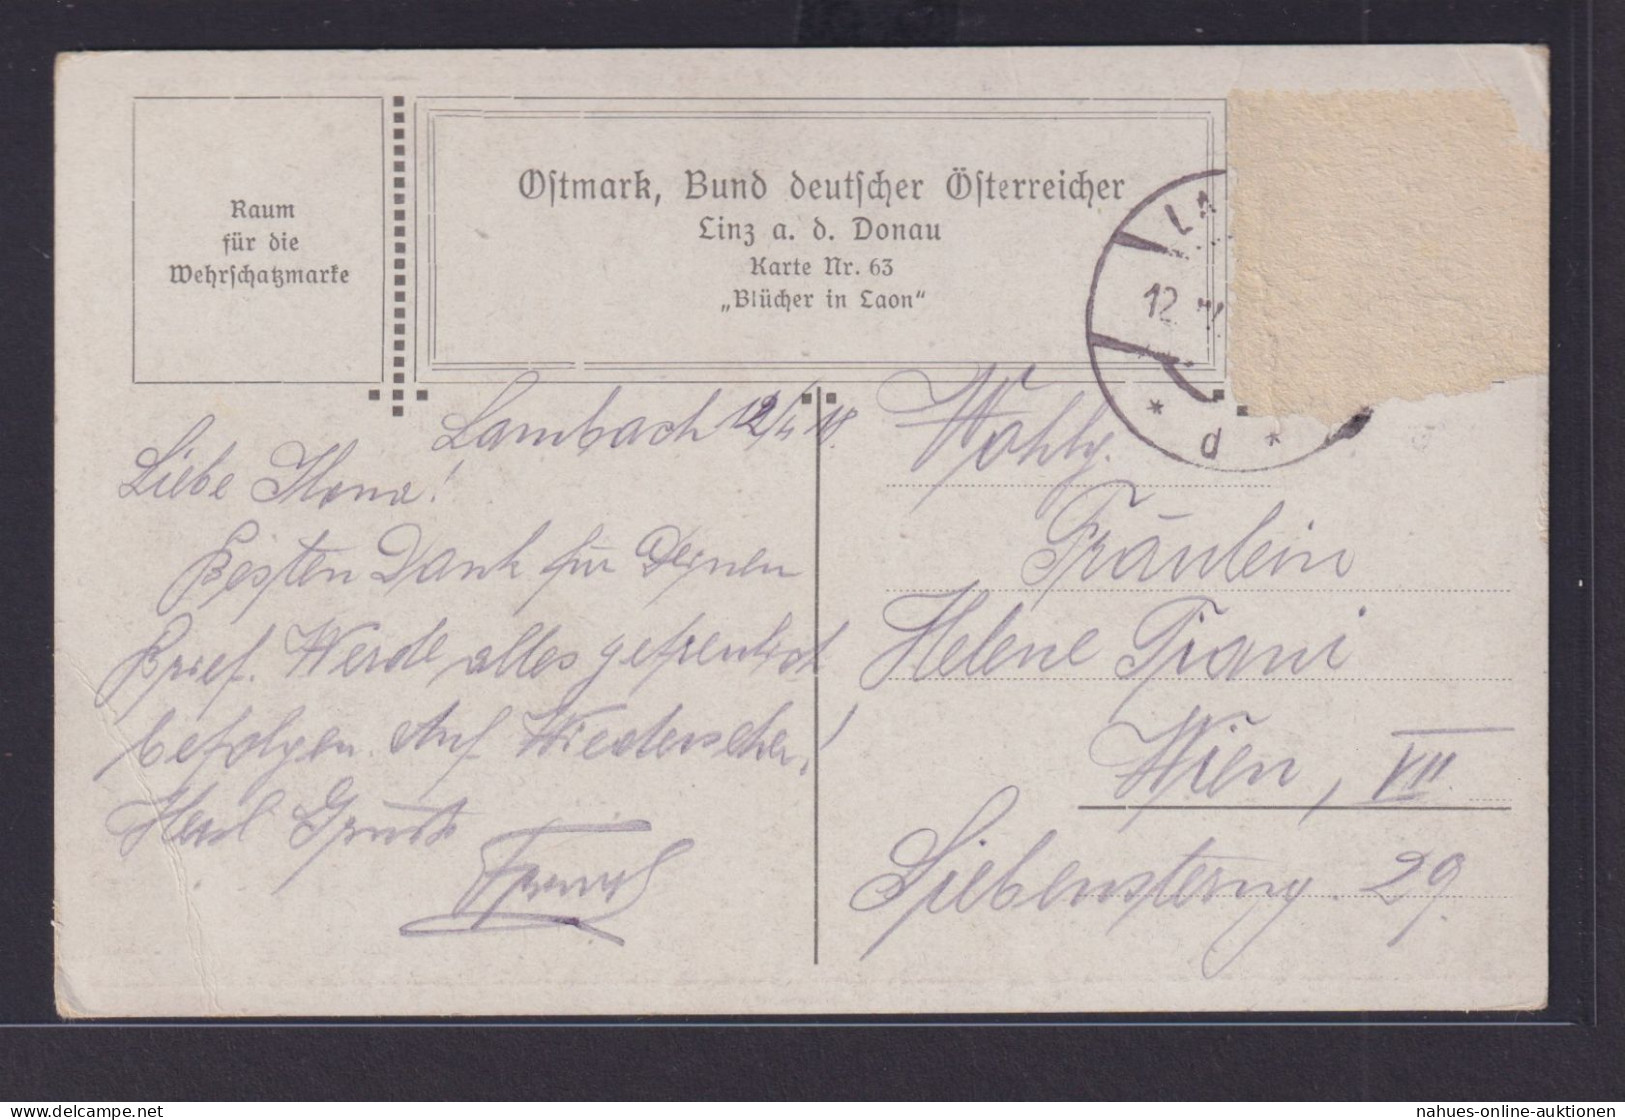 Raum
für die
Wehrschatzmarke
Ostmark, Bund deutscher Österreicher
Linz a. d. Donau
Karte Nr. 63
„Blücher in Laon"
LA
12. IV
* d *
Lambach 12/4 18.
Liebe Ilona!
Besten Dank für Deinen
Brief. Werde alles gefreulich
befolgen. Auf Wiedersehen!
Herzl Gruß
Wohlg.
Fräulein
Helene Trani
Wien, VII.
Siebensterng. 29.
nahues-online-auktionen